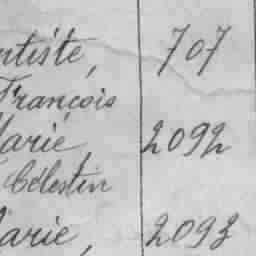 ntiste, 707
François
Marie 2092
Célestin
Marie, 2093